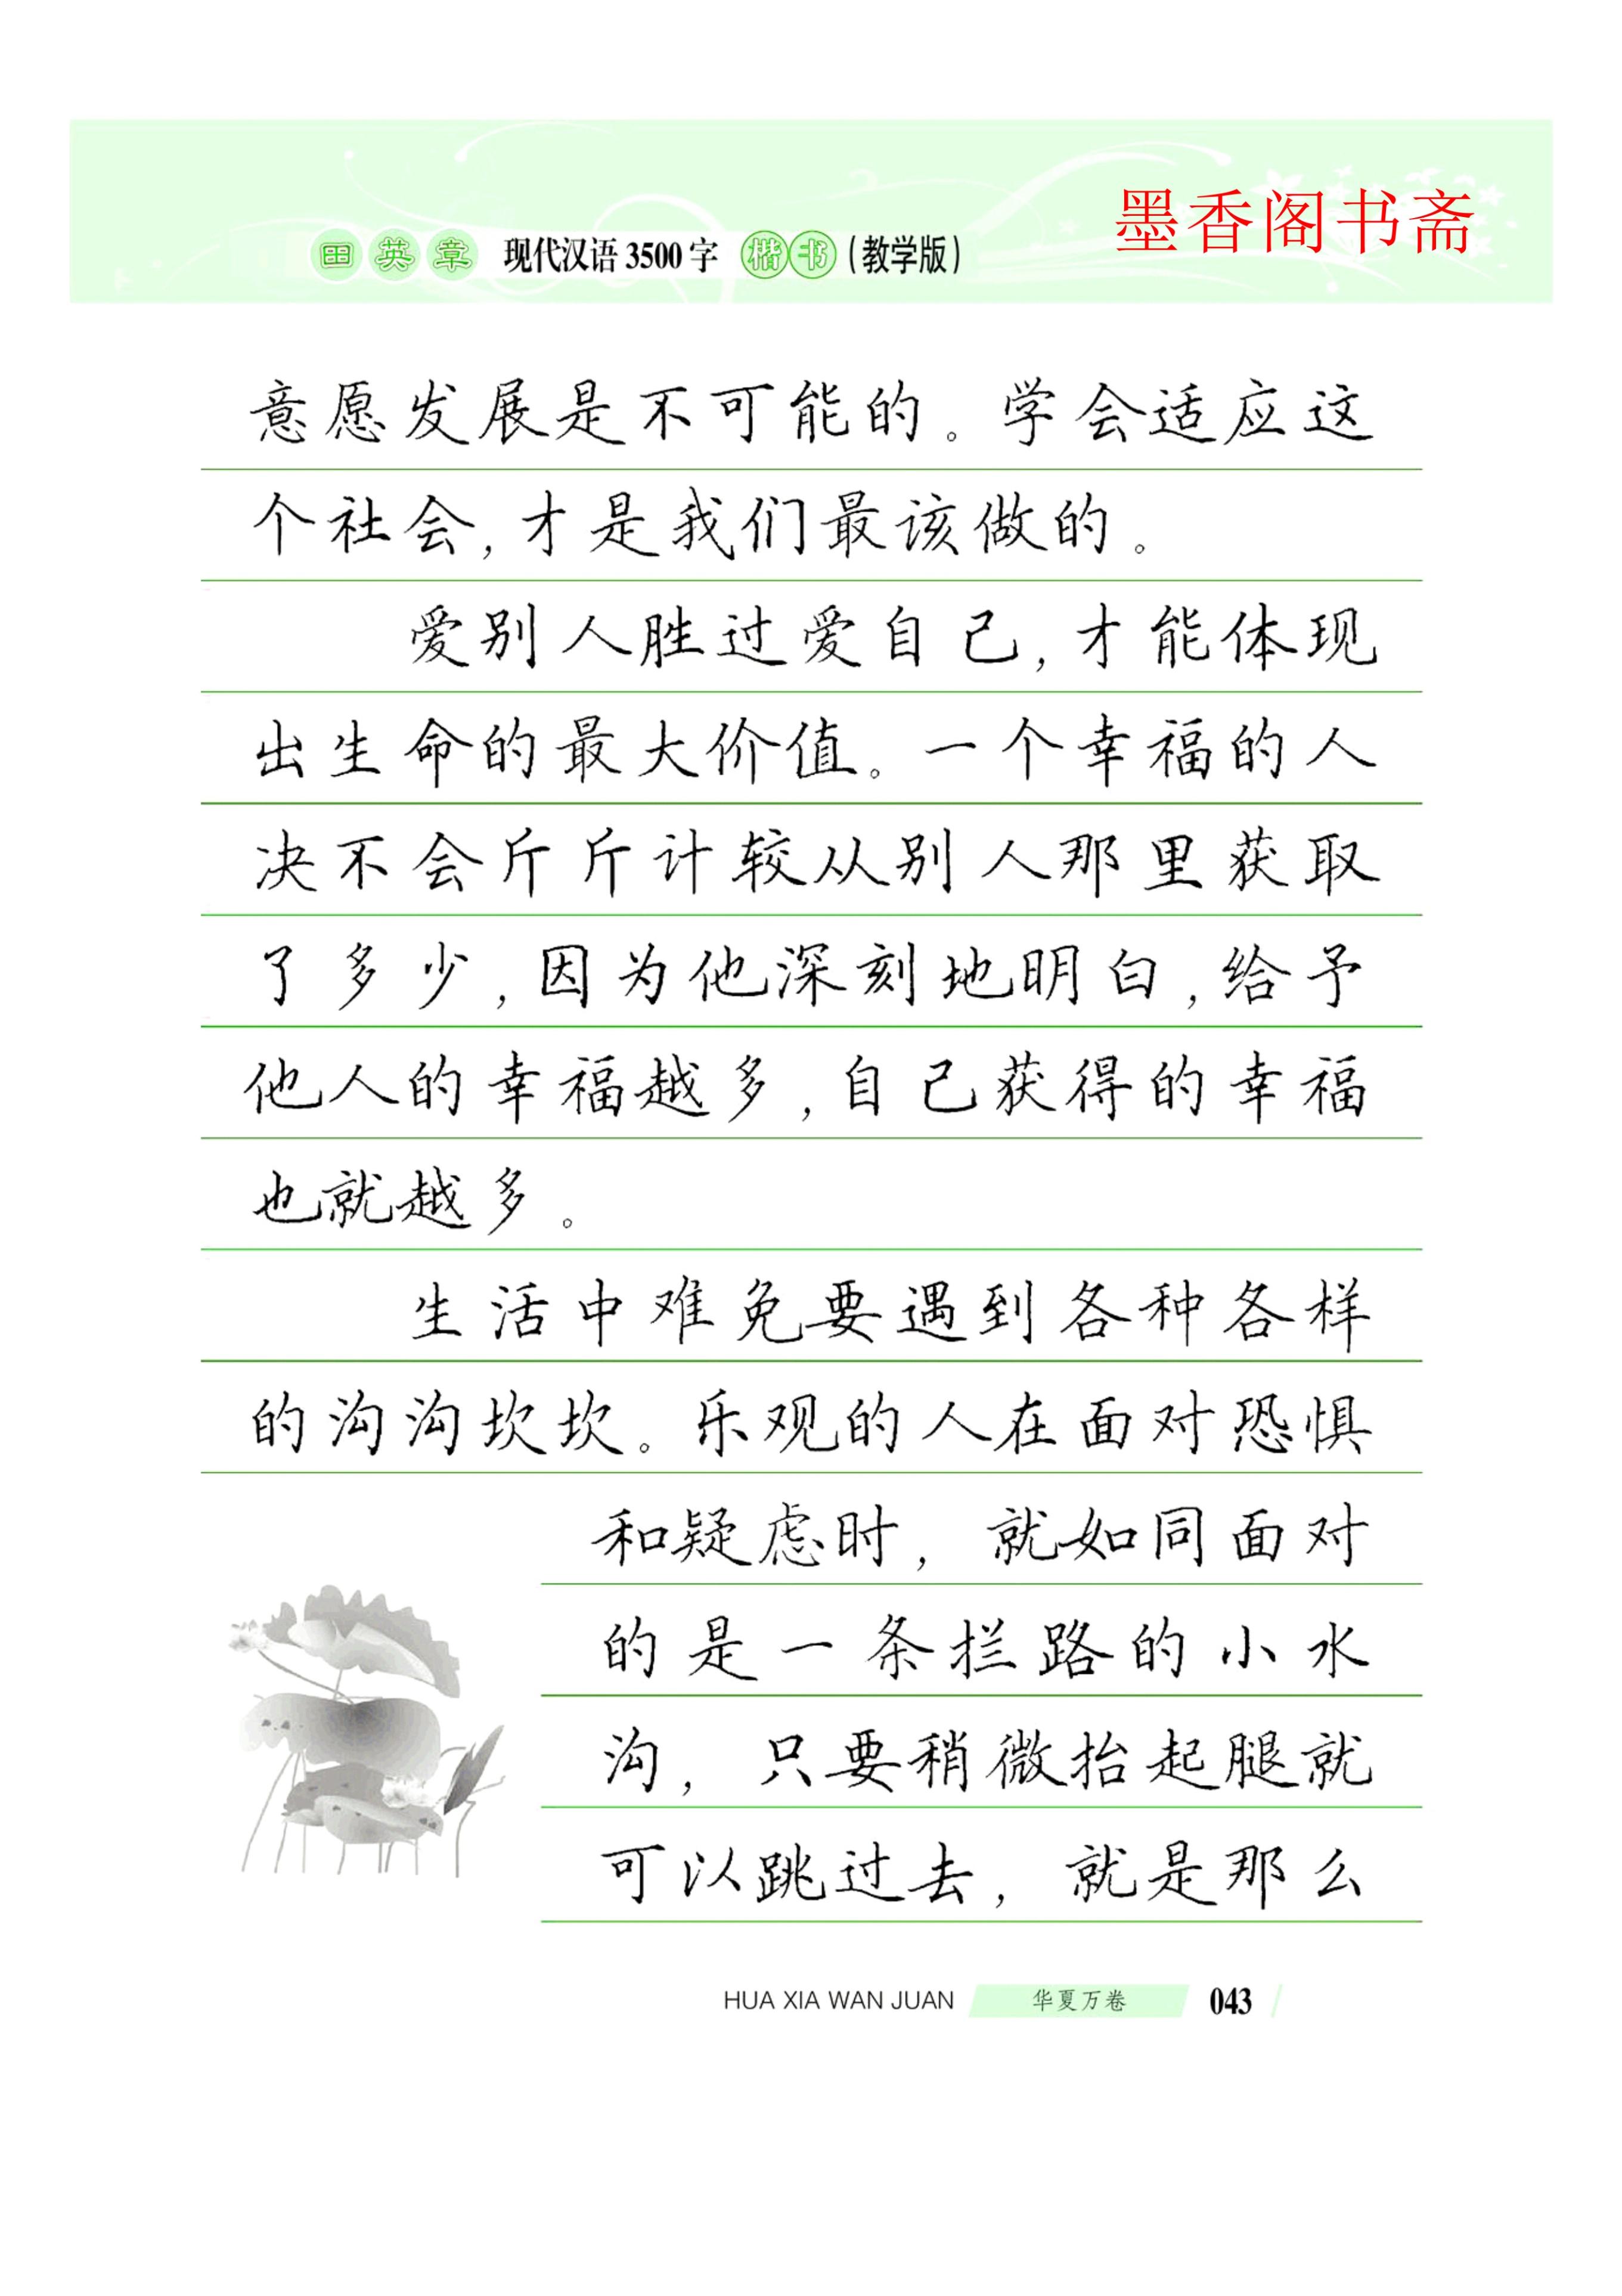 墨香阁书斋
田英章 现代汉语3500字 楷书(教学版)
意愿发展是不可能的。学会适应这
个社会,才是我们最该做的。
爱别人胜过爱自己,才能体现
出生命的最大价值。一个幸福的人
决不会斤斤计较从别人那里获取
了多少,因为他深刻地明白,给予
他人的幸福越多,自己获得的幸福
也就越多。
生活中难免要遇到各种各样
的沟沟坎坎。乐观的人在面对恐惧
和疑虑时,就如同面对
的是一条拦路的小水
沟,只要稍微抬起腿就
可以跳过去,就是那么
HUA XIA WAN JUAN 华夏万卷 043